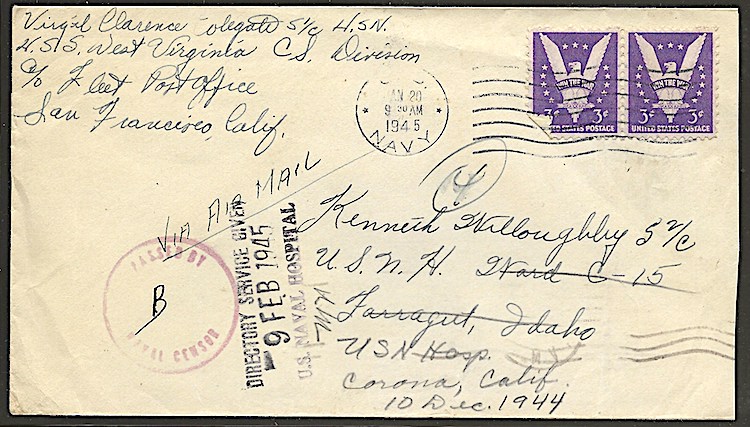 Virgil Clarence S 1/c U.S.N.
U.S.S. West Virginia C.S. Division
c/o Fleet Post Office
San Francisco, Calif.
JAN 20
9 30 AM
1945
NAVY
WIN THE WAR
3¢ 3¢
UNITED STATES POSTAGE UNITED STATES POSTAGE
VIA AIR MAIL
PASSED BY
B
NAVAL CENSOR
DIRECTORY SERVICE GIVEN
9 FEB 1945
U.S. NAVAL HOSPITAL
Kenneth Willoughby S 2/c
U.S.N.H. Ward C-15
Farragut, Idaho
USN Hosp.
Corona, Calif.
10 Dec. 1944